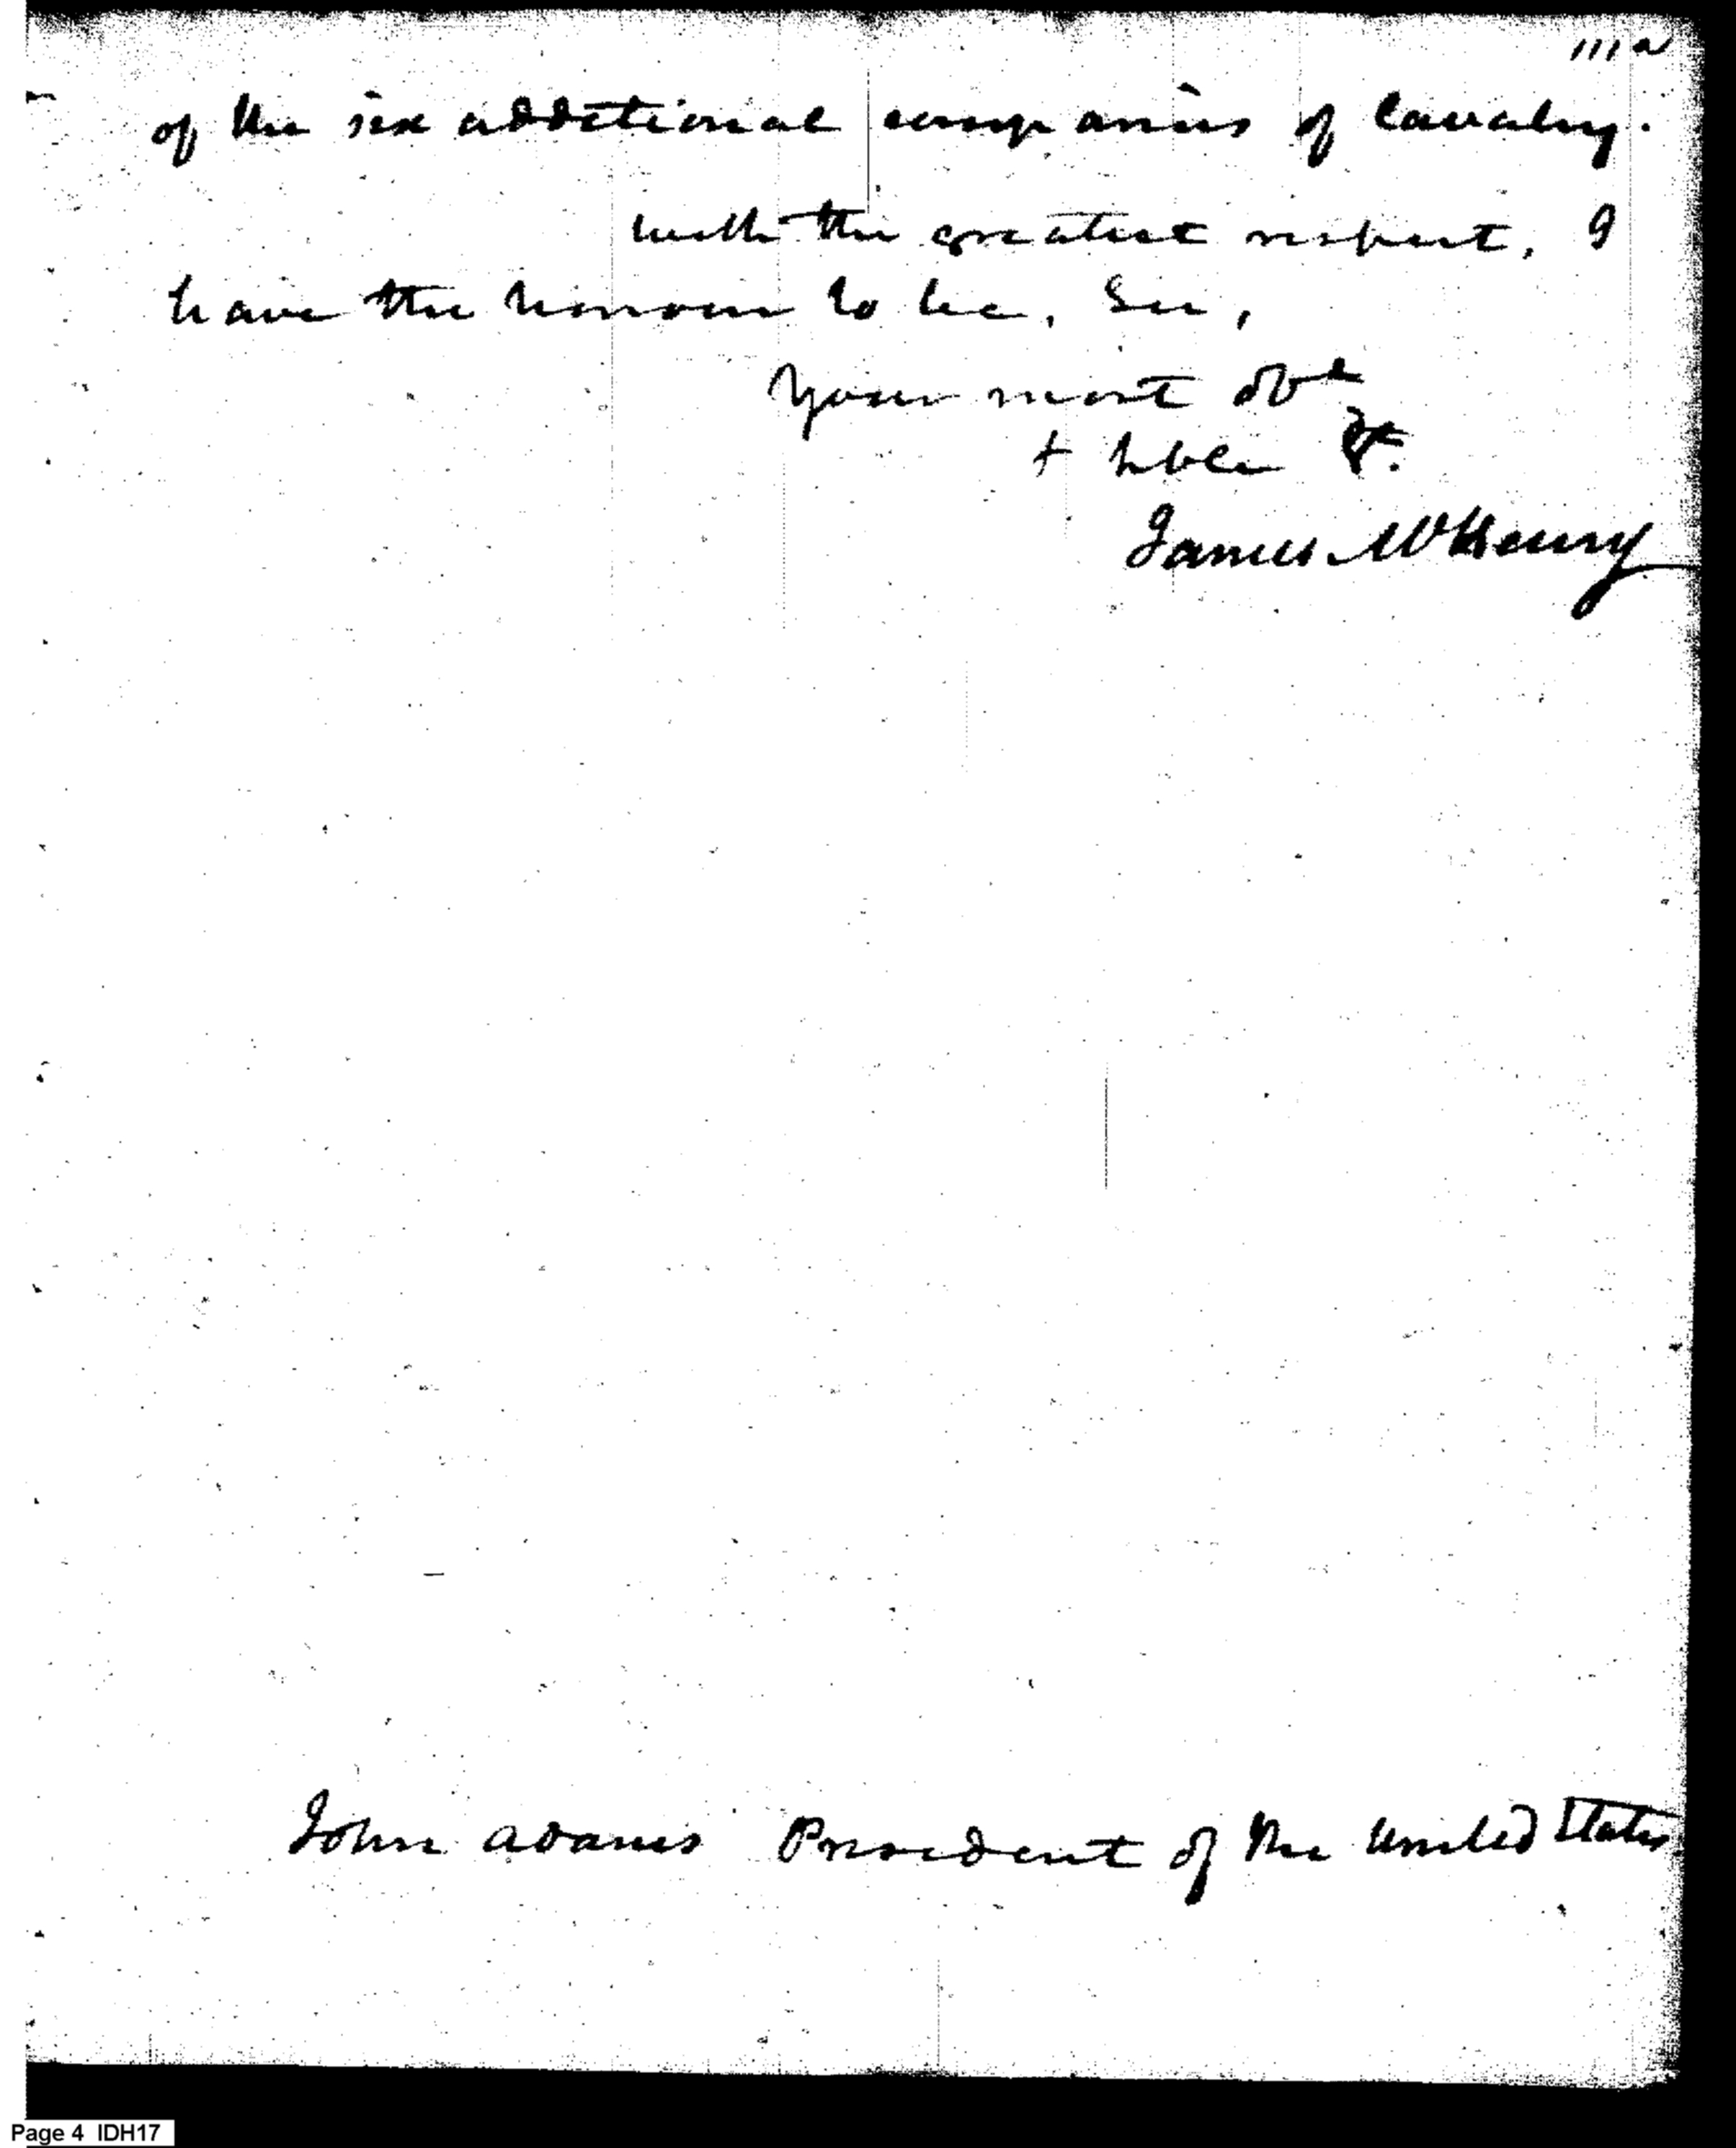 111a
of the six additional companies of Cavalry.
with the greatest respect, I
have the honour to be, Sir,
Your most obt
+ hble St.
James McHenry
John Adams President of the United States
Page 4 IDH17